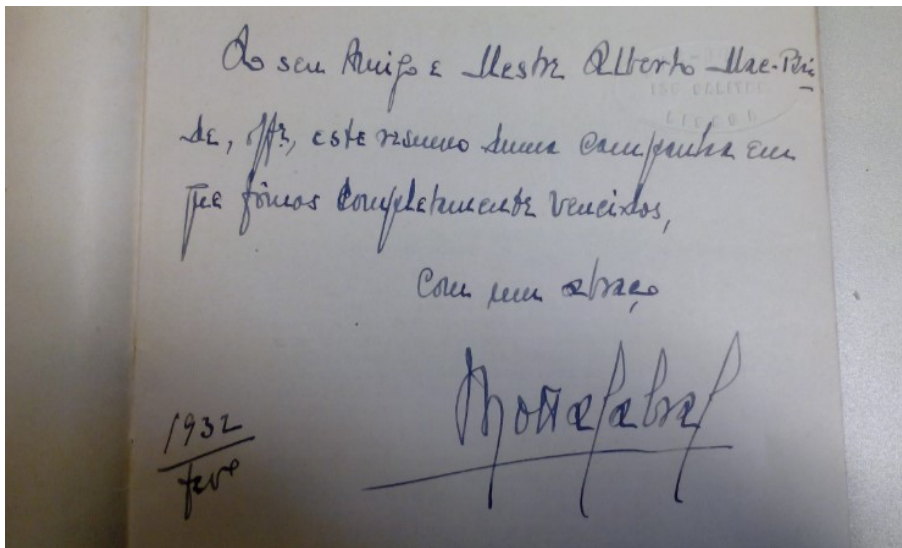 Ao seu Amigo e Mestre Alberto Mac-Bri-
de, offe, este resumo duma campanha em
que fômos completamente vencidos,
Com um abraço
Motta Cabral
1932
fevº